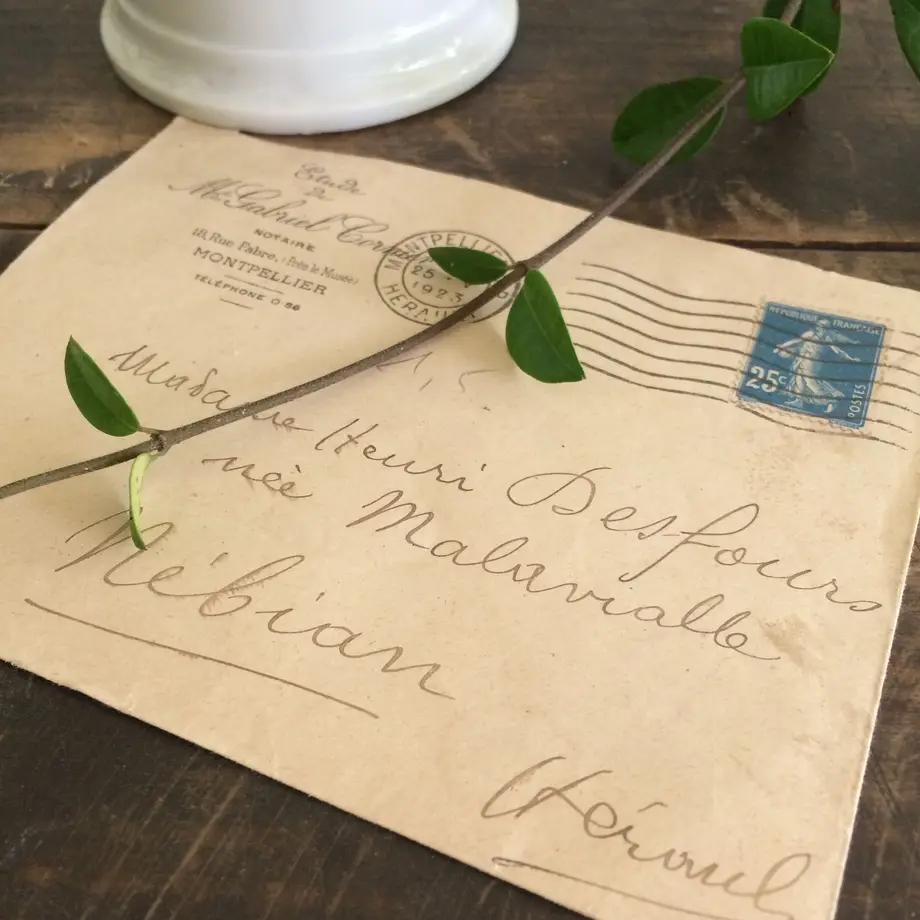 Etude
de
Me Gabriel
NOTAIRE
18, Rue Fabre, (Près le Musée)
MONTPELLIER
TÉLÉPHONE 0-86
MONTPELLIER
25
1923
HERAULT
REPUBLIQUE FRANÇAISE
25c
POSTES
Madame Henri Desfours
née Malavialle
Nébian
Héraul